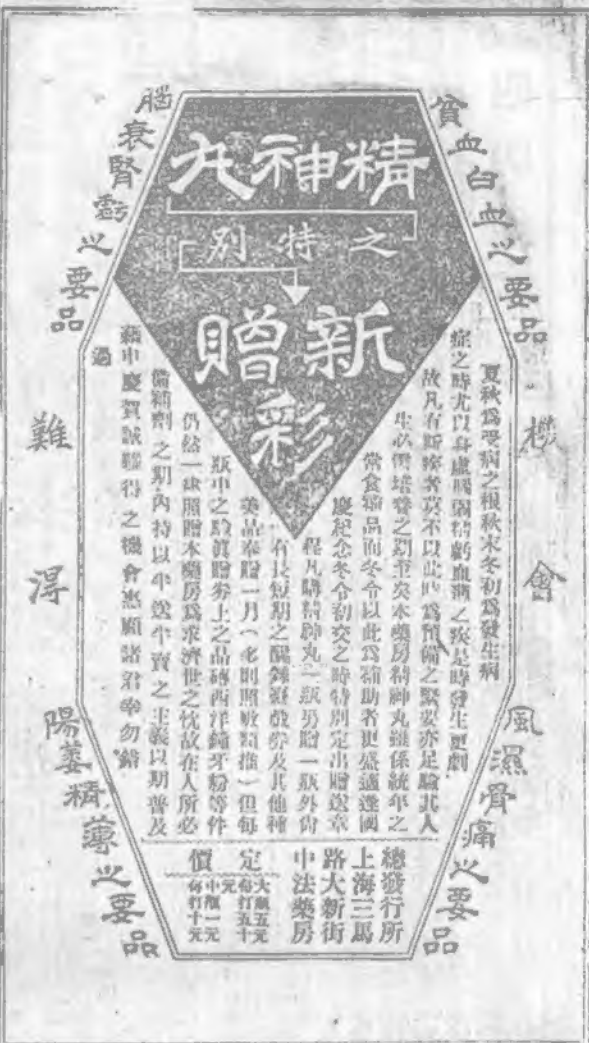 精神丸
之特別
新贈
彩
貧血白血之要品
腦衰腎虧之要品
機會
難得
風濕骨痛之要品
陽萎精薄之要品
夏秋為受病之根秋末冬初為發生病
症之時尤以身虛腦弱精虧血薄之疾是時發生更劇
故凡有斯疾者莫不以此時為預備之緊要亦足驗其人
生必需培養之劑至矣本藥房精神丸雖係統年之
常食補品而冬令以此為補助者更盛適逢國
慶紀念冬令初交之時特別定出贈送章
程凡購精神丸一瓶另贈一瓶外尚
有長短期之醒舞臺戲券及其他種
美品奉贈一月(多則照數類推)但每
瓶中之驗真贈券上之品磚西洋鏡牙粉等件
仍然一律照贈本藥房為求濟世之忱故在人所必
備補劑之期內特以半送半賣之主義以期普及
藉申慶賀誠難得之機會惠顧諸君幸勿錯
過
總發行所
上海三馬
路大新街
中法藥房
定價
大瓶五元
每打五十
元
中瓶一元
每打十元